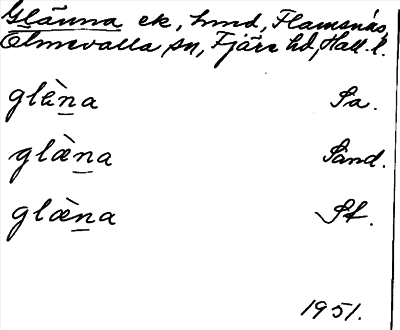 Glänna ek, hmd, Flamsnäs,
Ölmevalla sn, Fjäre hd, Hall. l.
glæ̀na Sa.
glæ̀na Sänd.
glæ̀na St.
1951.